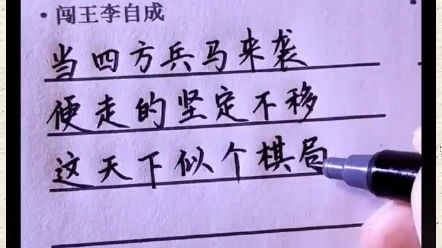 ·闯王李自成
当四方兵马来袭
便走的坚定不移
这天下似个棋局